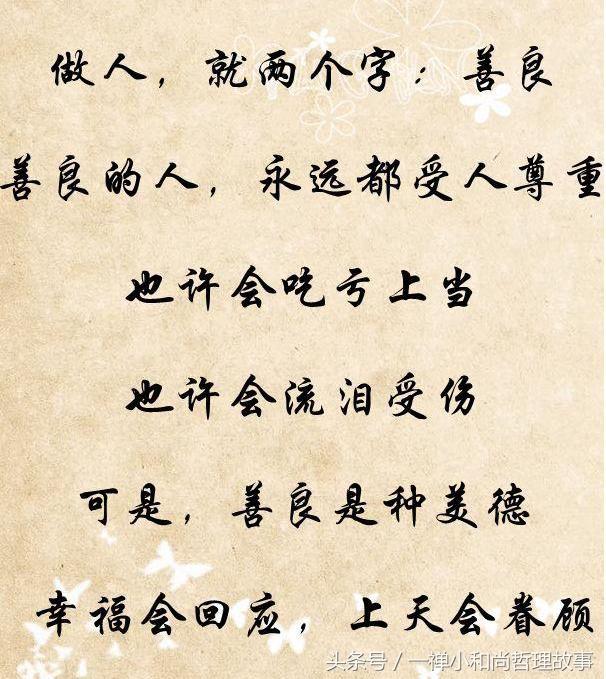 做人，就两个字：善良
善良的人，永远都受人尊重
也许会吃亏上当
也许会流泪受伤
可是，善良是种美德
幸福会回应，上天会眷顾
头条号 / 一禅小和尚哲理故事